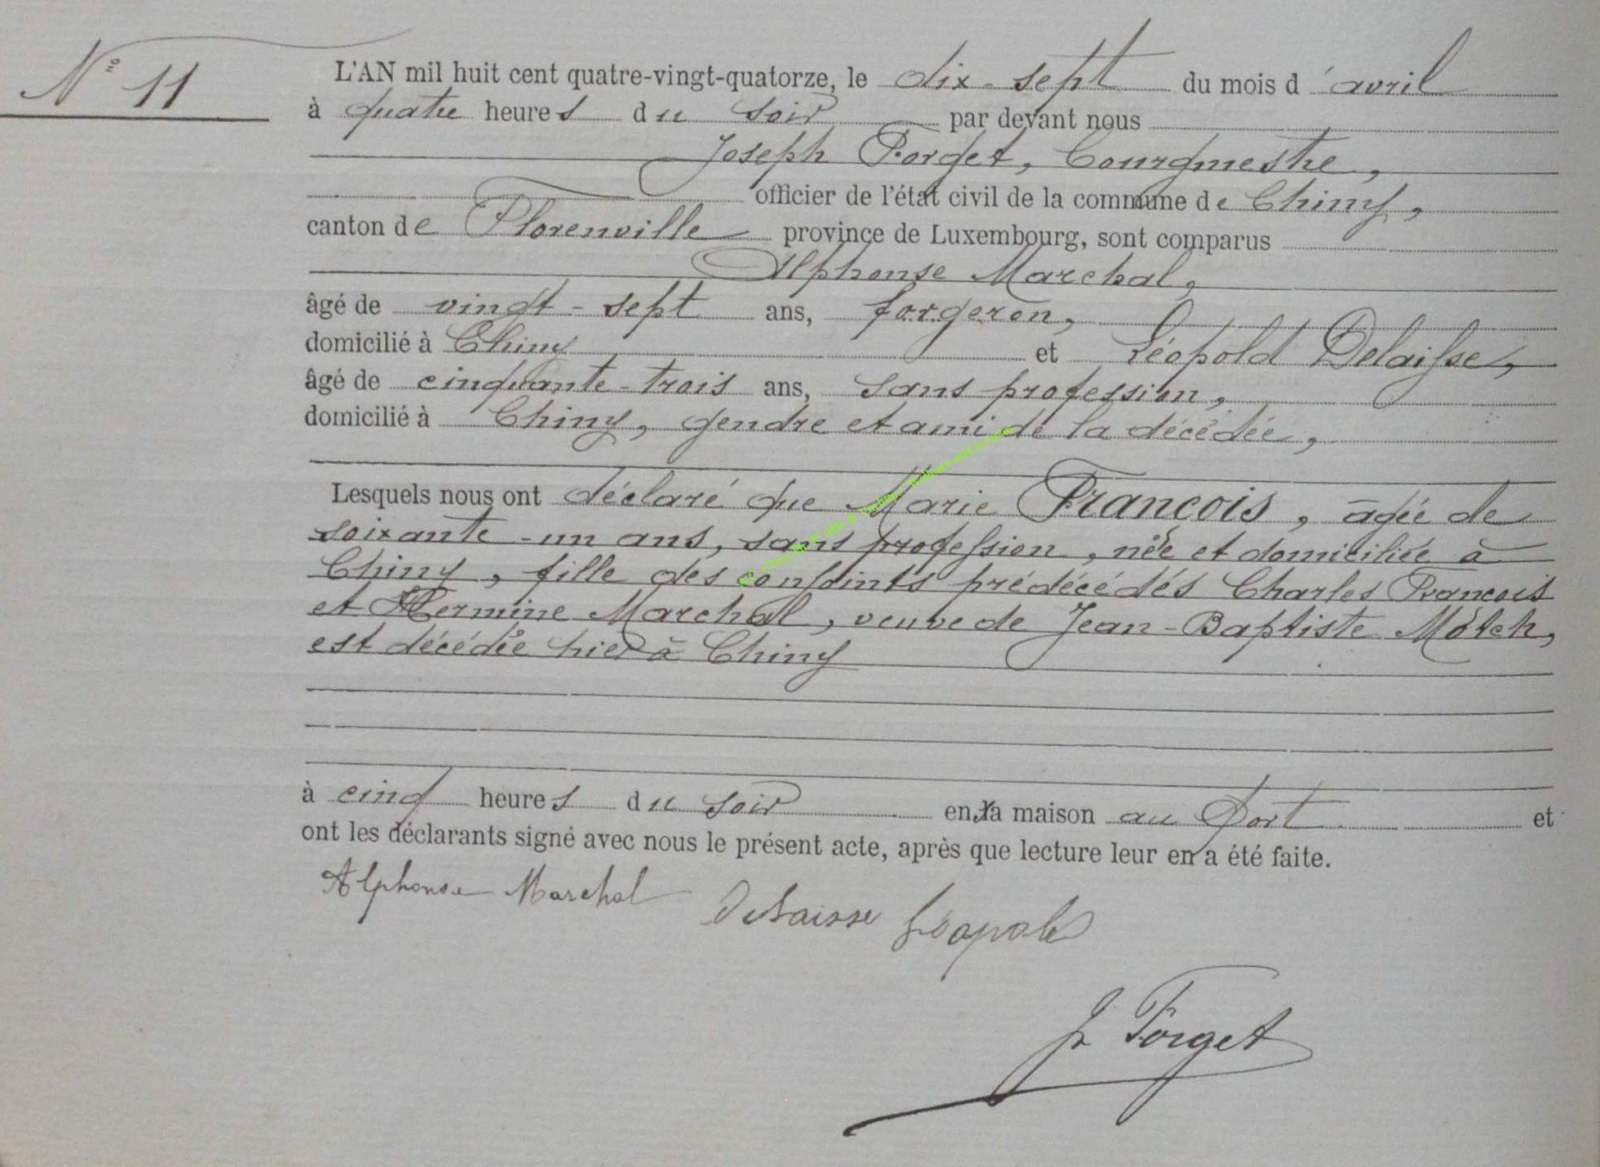 N° 11
L'AN mil huit cent quatre-vingt-quatorze, le dix-sept du mois d'avril
à quatre heures du soir par devant nous
Joseph Forget, bourgmestre,
officier de l'état civil de la commune de Chiny,
canton de Florenville province de Luxembourg, sont comparus
Alphonse Marchal,
âgé de vingt-sept ans, forgeron,
domicilié à Chiny et Léopold Delaisse,
âgé de cinquante-trois ans, sans profession,
domicilié à Chiny, gendre et ami de la décédée,
Lesquels nous ont déclaré que Marie François, âgée de
soixante-un ans, sans profession, née et domiciliée à
Chiny, fille des conjoints prédécédés Charles François
et Hermine Marchal, veuve de Jean-Baptiste
est décédée hier à Chiny
à cinq heures du soir en sa maison au Port et
ont les déclarants signé avec nous le présent acte, après que lecture leur en a été faite.
Alphonse Marchal Delaisse Léopold
J Forget